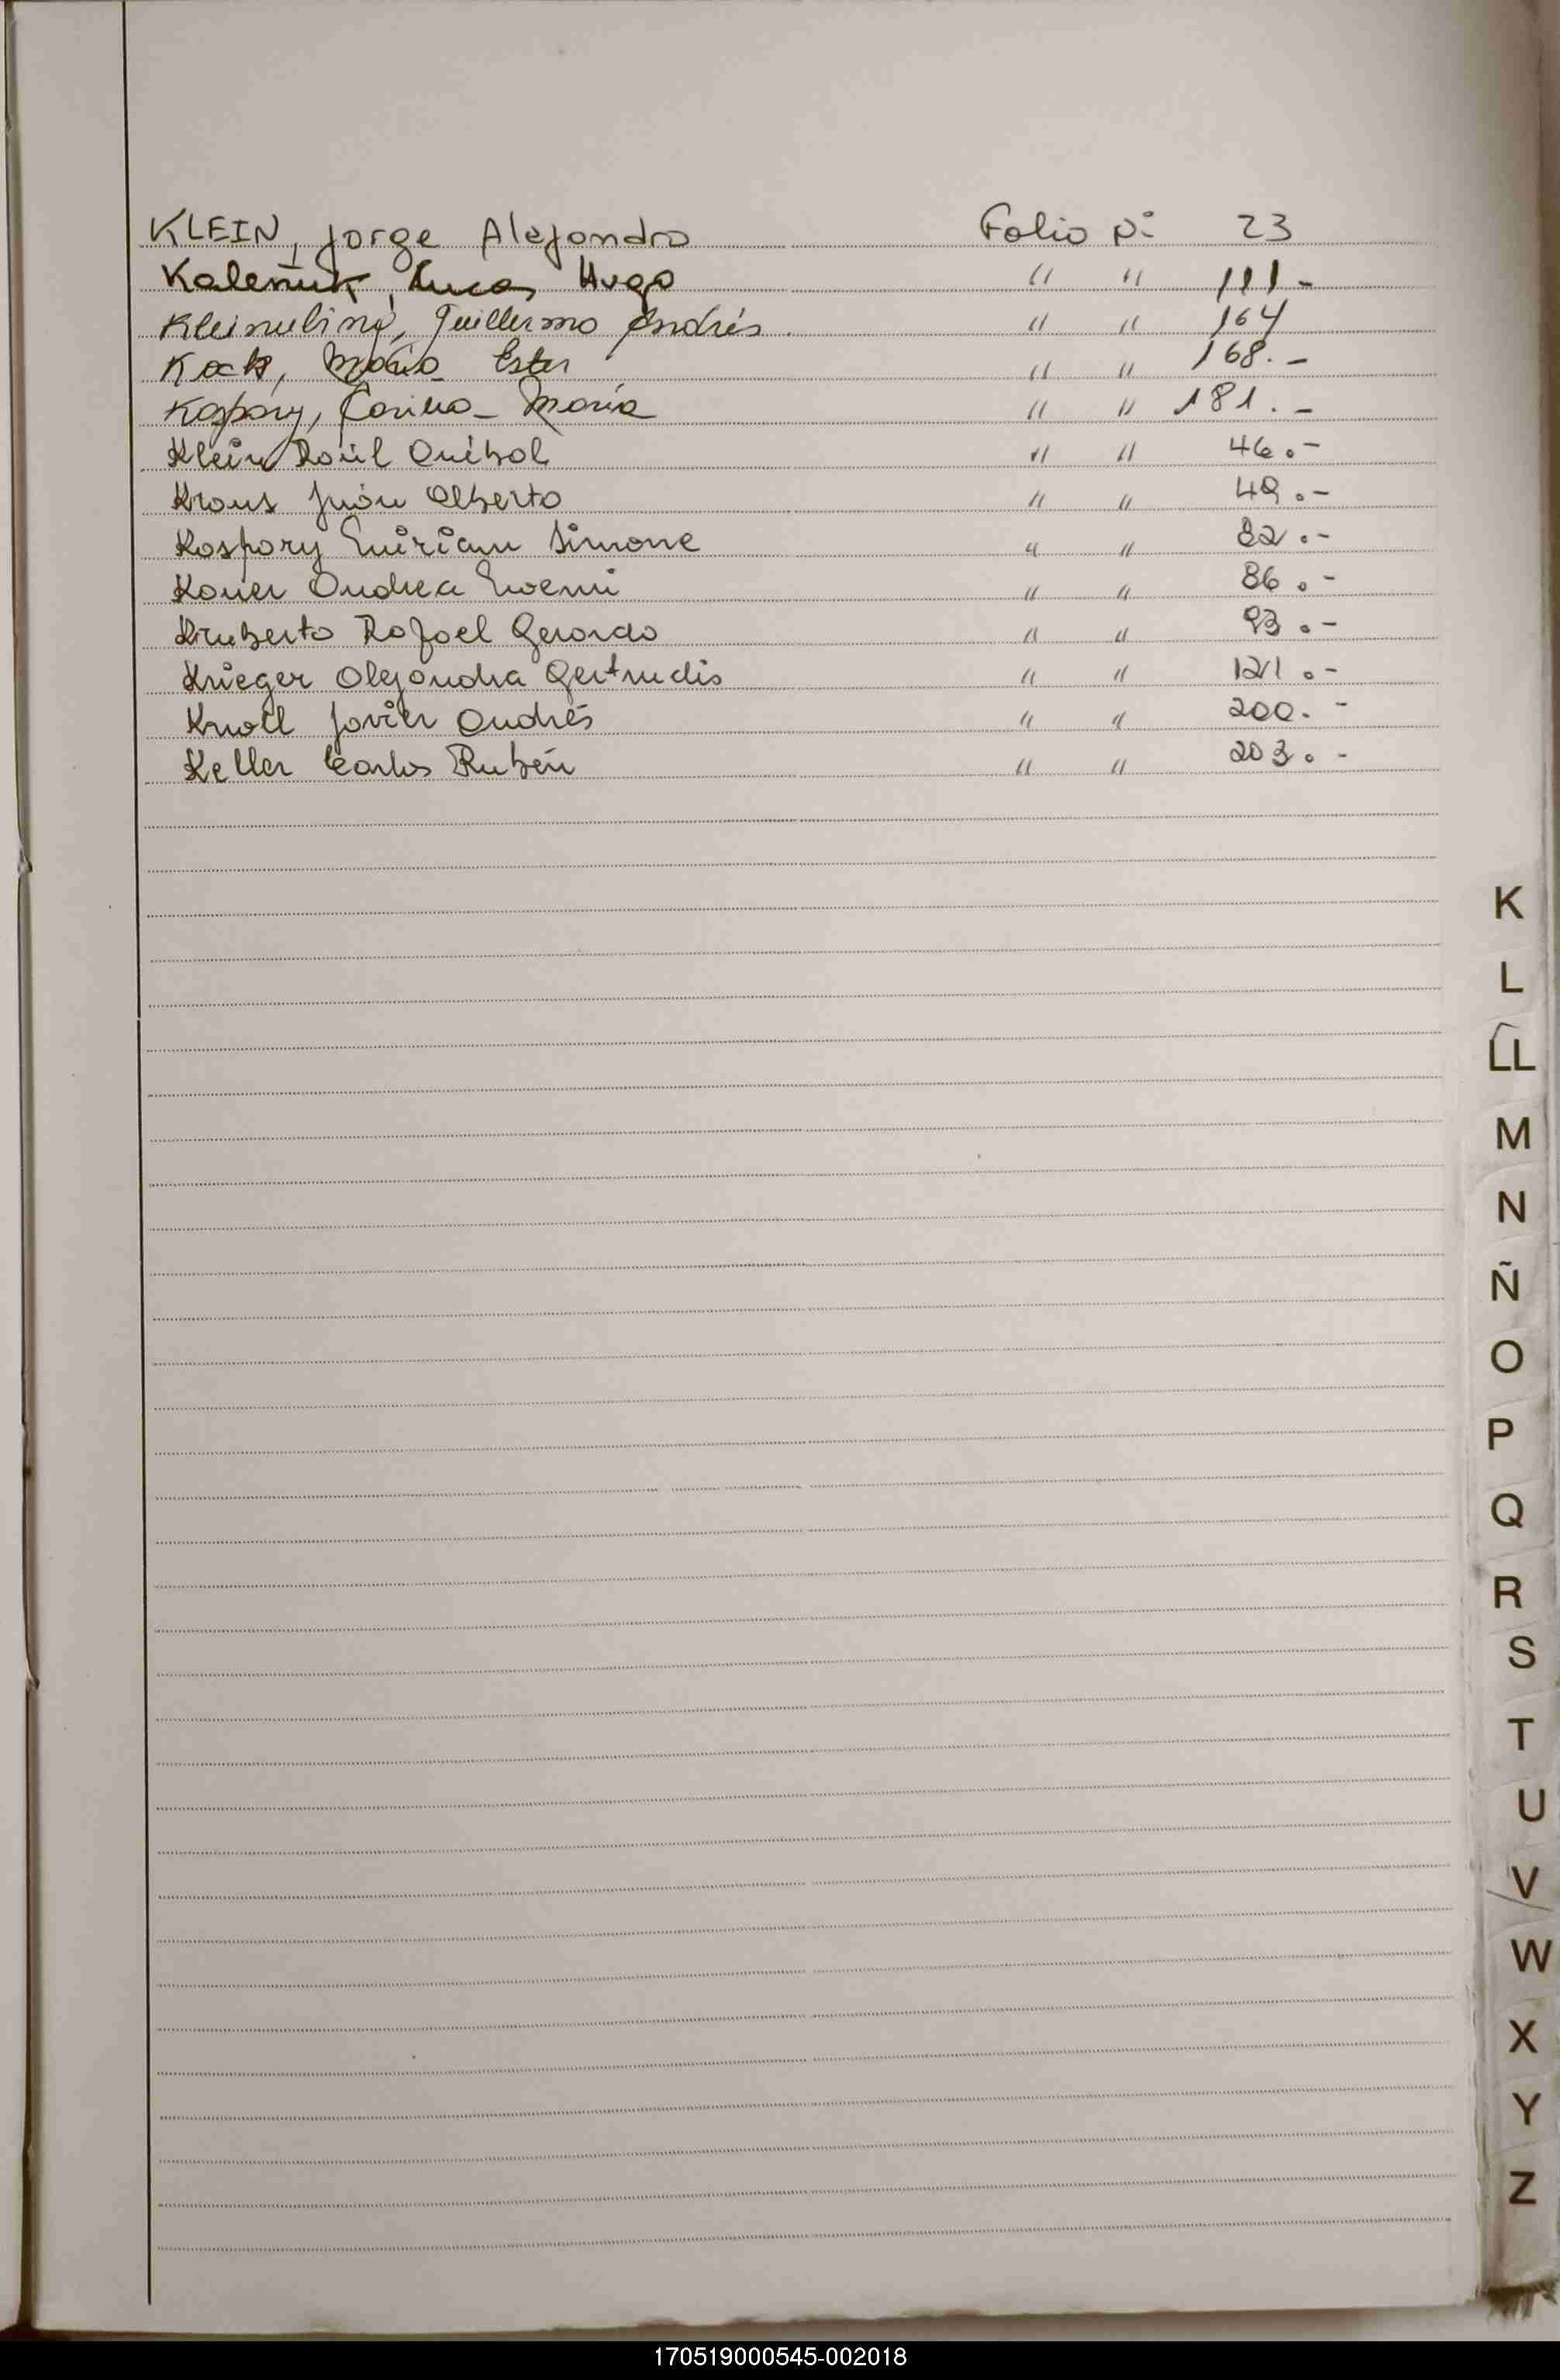 KLEIN, Jorge Alejandro Folio Nº 23
Kaleñuk, Lucas Hugo " " 111.-
Kleinubing, Guillermo Andrés " " 164
Koch, María Ester " " 168.-
Kaspary, Carina María " " 181.-
Klein Raúl Anibal " " 46.-
Kraus Juan Alberto " " 49.-
Kaspary Miriam Simone " " 82.-
Andrea Noemi " " 86.-
Rafael Gerardo " " 93.-
Krieger Alejandra Gertrudis " " 121.-
Knoll Javier Andrés " " 200.-
Keller Carlos Rubén " " 203.-
K
L
LL
M
N
Ñ
O
P
Q
R
S
T
U
V
W
X
Y
Z
170519000545-002018